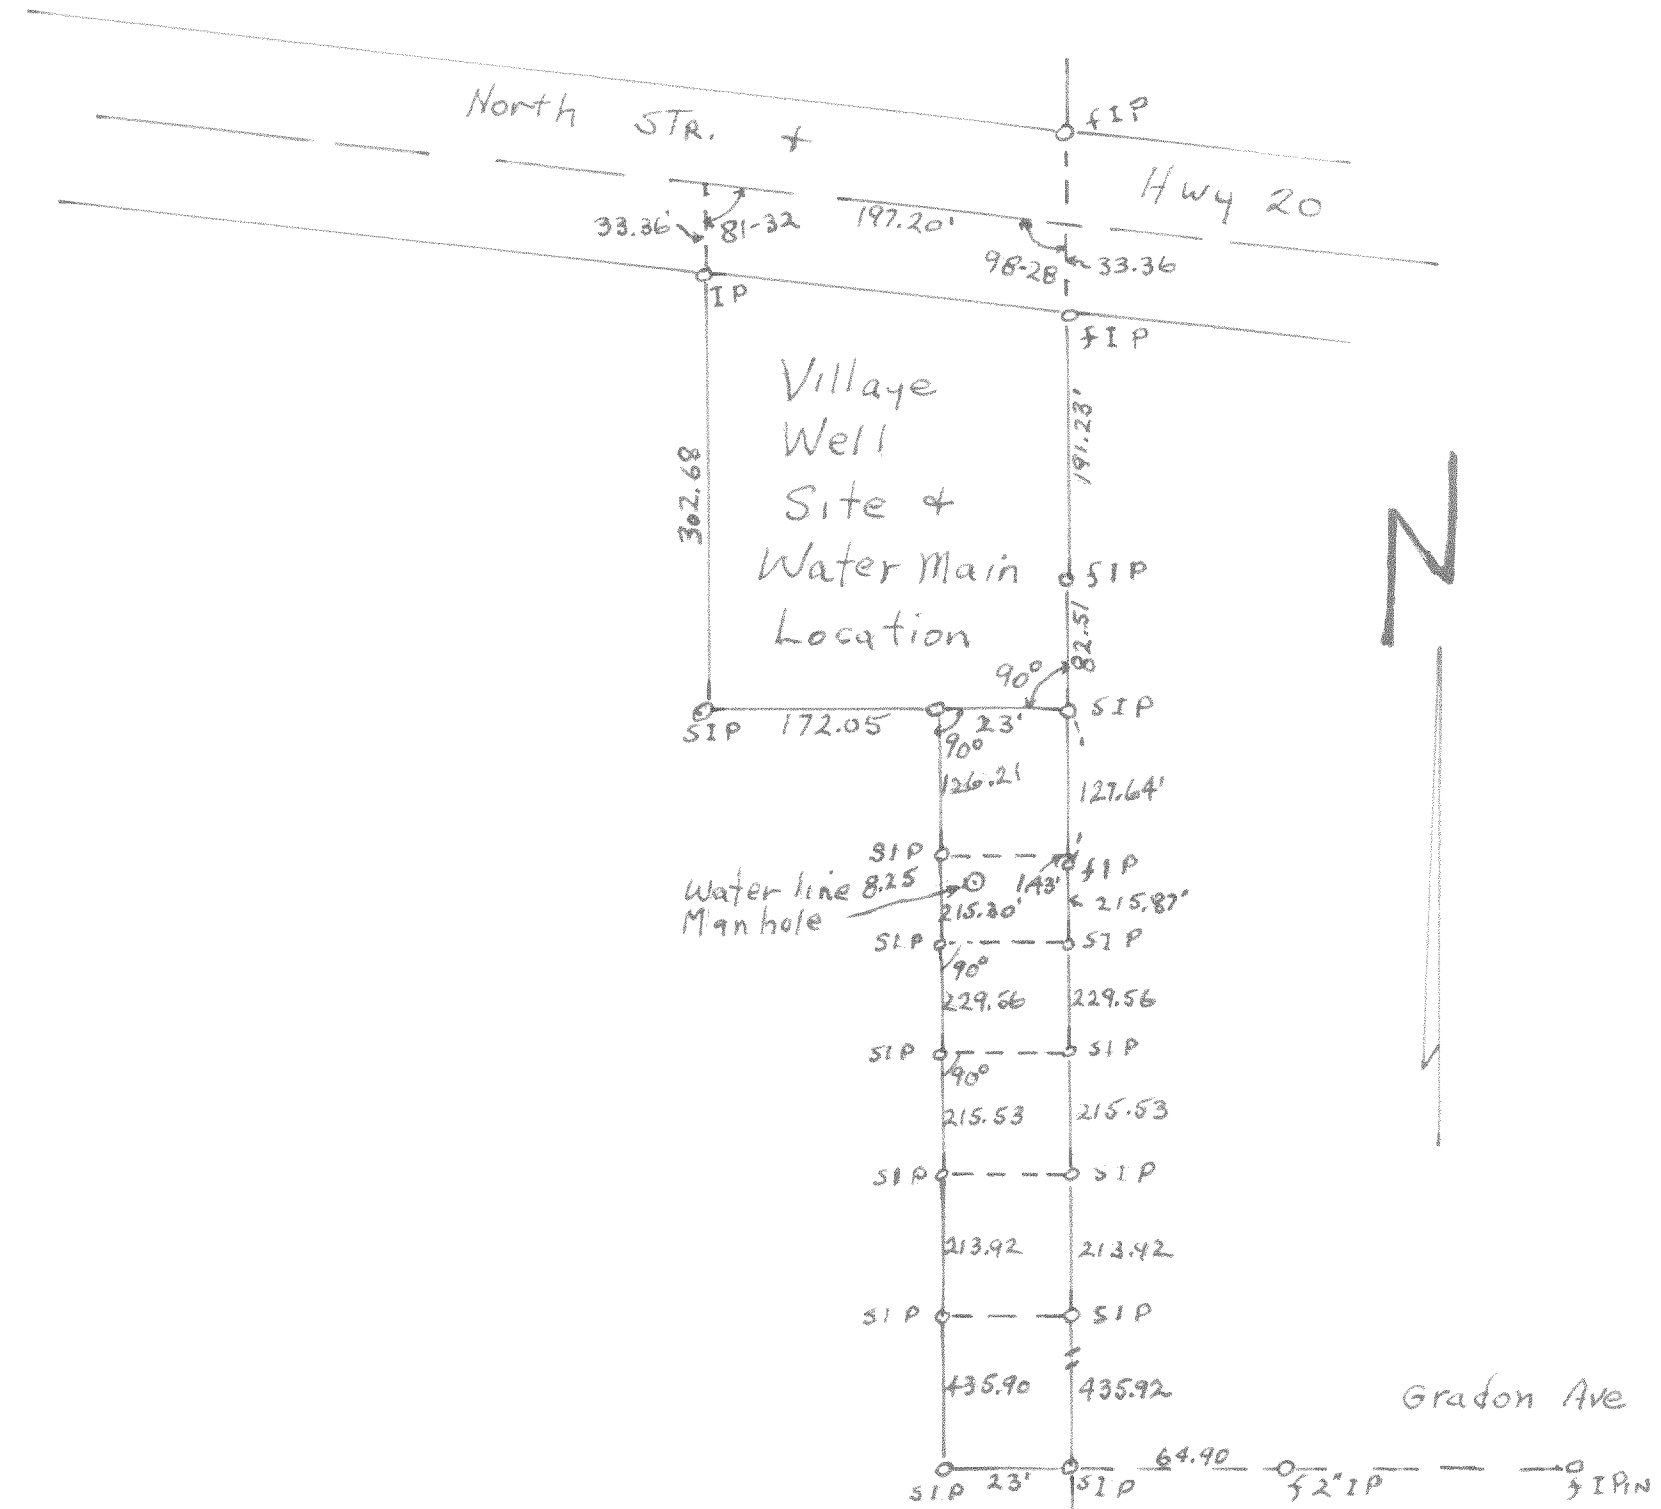 North STR. &
fIP
Hwy 20
33.36'
81-32
197.20'
98-28
33.36
IP
fIP
Village
Well
Site &
Water Main
Location
302.68
191.23'
fIP
82.51
90°
SIP
SIP
172.05
23'
90°
126.21
127.64'
SIP
fIP
Water line 8.25
1.43'
Manhole
215.80'
215.87'
SIP
SIP
90°
229.56
229.56
SIP
SIP
90°
215.53
215.53
SIP
SIP
213.92
213.92
SIP
SIP
435.90
435.92
Gradon Ave
64.90
SIP
23'
SIP
f 2" IP
f IPIN
N